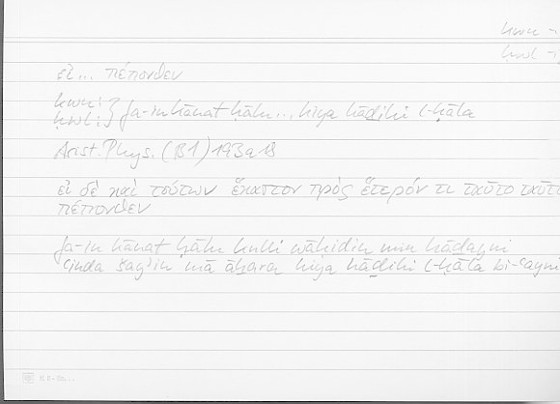 kwn
ḥwl
εἰ ... πέπονθεν
kwn: } fa-in kānat ḥālu ... hiya hāḏihi l-ḥāla
ḥwl: }
Arist. Phys. (B1) 193a18
εἰ δὲ καὶ τούτων ἕκαστον πρὸς ἕτερόν τι ταὐτὸ
πέπονθεν
fa-in kānat ḥālu kulli wāḥidin min hāḏayni
ʿinda šayʾin mā āḫara hiya hāḏihi l-ḥāla bi-ʿayni